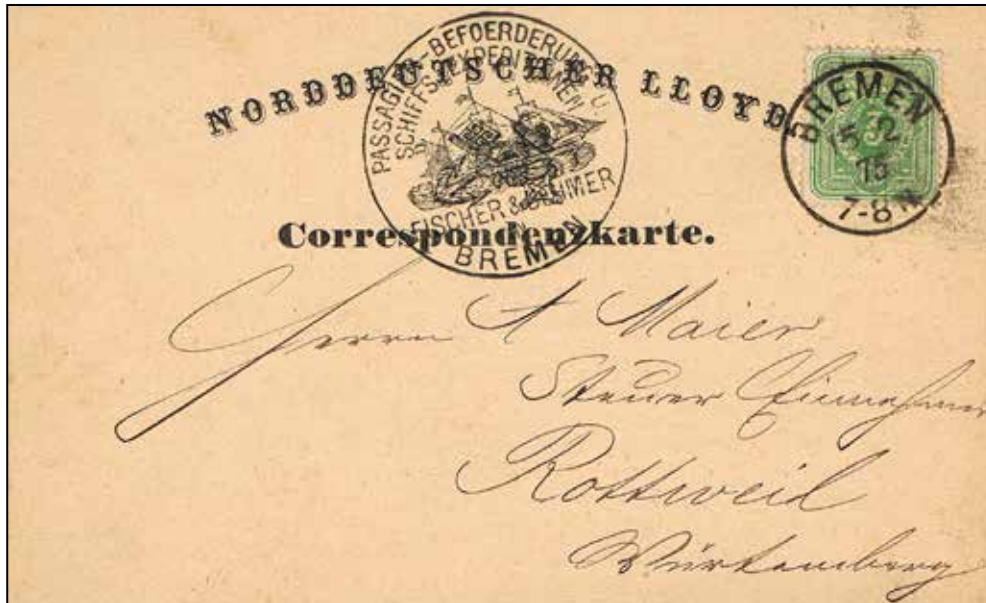 NORDDEUTSCHER LLOYD.
PASSAGIER-BEFOERDERUNG U.
SCHIFFS-EXPEDITIONEN
FISCHER & BEHMER
BREMEN
BREMEN
15 2
75
7-8 N
3
Correspondenzkarte.
Herrn A Maier
Steuer Einnehmer
Rottweil
Würtemberg